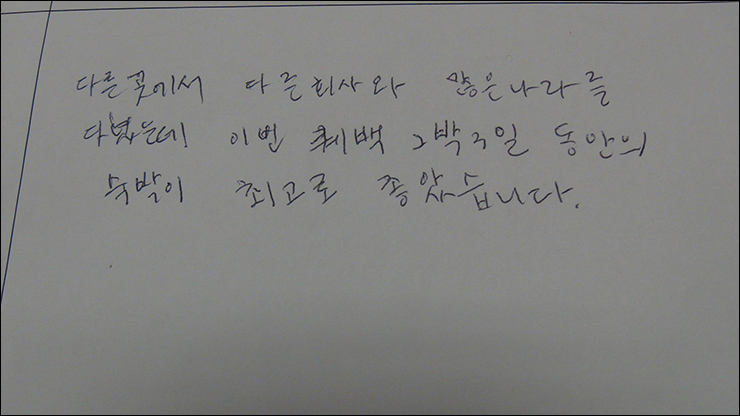 다른곳에서 다른회사와 많은나라를
다녔는데 이번 퀘백 2박3일 동안의
숙박이 최고로 좋았습니다.